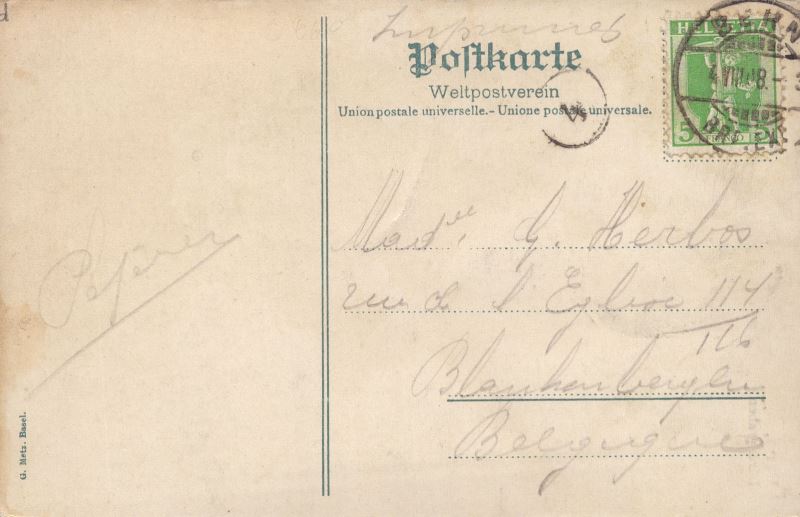 Imprimés
Postkarte
Weltpostverein
Union postale universelle.- Unione postale universale.
HELVETIA
5 5
BERN
4.VIII.08.-
4
Madlle G. Herbos
rue de l'Eglise 114
116
Blankenberghe
Belgique
G. Metz. Basel.